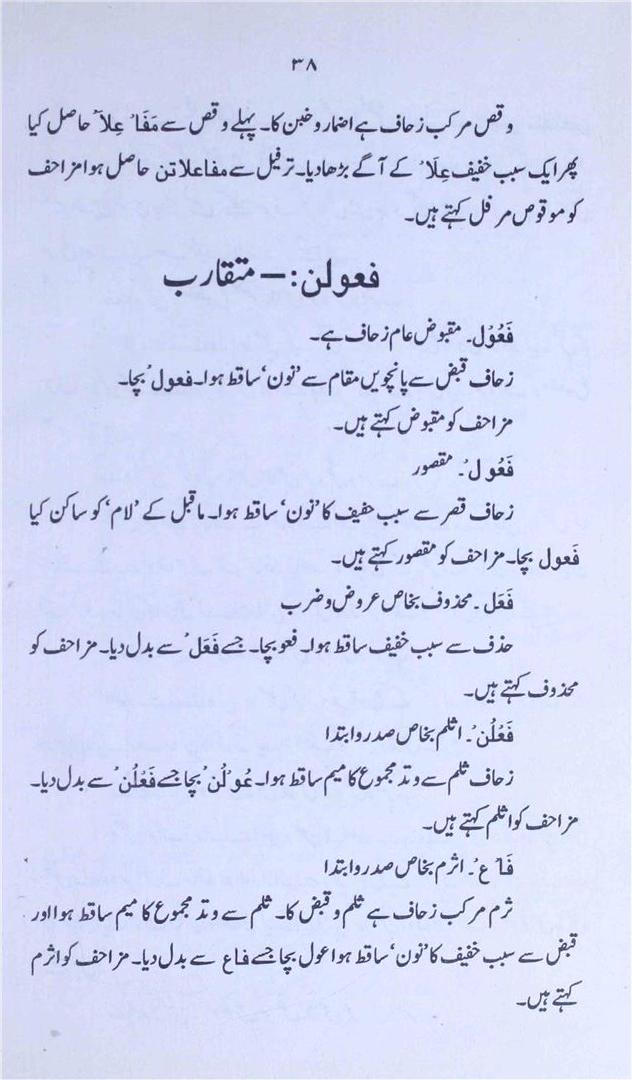 ۳۸
وقص مرکب زحاف ہے اضمار و خبن کا۔ پہلے وقص سے مَفَا ُ عِلاَ ُ حاصل کیا
پھر ایک سبب خفیف عِلَا ُ کے آگے بڑھا دیا۔ ترفیل سے مفاعلاتن حاصل ہوا مزاحف
کو موقوص مرفل کہتے ہیں۔
فعولن: – متقارب
فَعُوْل۔ مقبوض عام زحاف ہے۔
زحاف قبض سے پانچویں مقام سے ’نون‘ ساقط ہوا۔ فعول ُ بچا۔
مزاحف کو مقبوض کہتے ہیں۔
فَعُول ْ۔ مقصور
زحاف قصر سے سبب حفیف کا ’نون‘ ساقط ہوا۔ ماقبل کے ’لام‘ کو ساکن کیا
فَعول بچا۔ مزاحف کو مقصور کہتے ہیں۔
فَعَل ۔ محذوف بخاص عروض و ضرب
حذف سے سبب خفیف ساقط ہوا۔ فعو بچا۔ جسے فَعَل ْ سے بدل دیا۔ مزاحف کو
محذوف کہتے ہیں۔
فَعْلُن ْ۔ اثلم بخاص صدر و ابتدا
زحاف ثلم سے وتد مجموع کا میم ساقط ہوا۔ عُو ْلُن ْ بچا جسے فَعْلُن ْ سے بدل دیا۔
مزاحف کو اثلم کہتے ہیں۔
فَا ع ُ۔ اثرم بخاص صدر و ابتدا
ثرم مرکب زحاف ہے ثلم و قبض کا۔ ثلم سے وتد مجموع کا میم ساقط ہوا اور
قبض سے سبب خفیف کا ’نون‘ ساقط ہوا عول بچا جسے فاع سے بدل دیا۔ مزاحف کو اثرم
کہتے ہیں۔